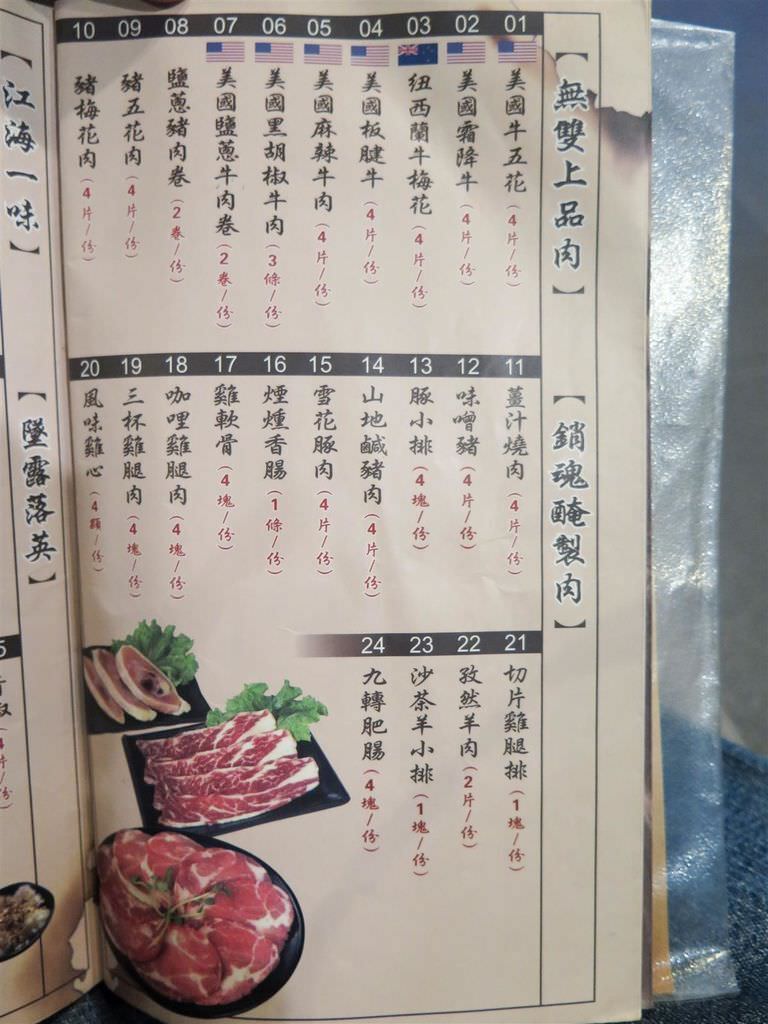 【無雙上品肉】
01 美國牛五花（4片/份）
02 美國霜降牛（4片/份）
03 紐西蘭牛梅花（4片/份）
04 美國板腱牛（4片/份）
05 美國麻辣牛肉（4片/份）
06 美國黑胡椒牛肉（3條/份）
07 美國鹽蔥牛肉卷（2卷/份）
08 鹽蔥豬肉卷（2卷/份）
09 豬五花肉（4片/份）
10 豬梅花肉（4片/份）
【銷魂醃製肉】
11 薑汁燒肉（4片/份）
12 味噌豬（4片/份）
13 豚小排（4塊/份）
14 山地鹹豬肉（4片/份）
15 雪花豚肉（4片/份）
16 煙燻香腸（1條/份）
17 雞軟骨（4塊/份）
18 咖哩雞腿肉（4塊/份）
19 三杯雞腿肉（4塊/份）
20 風味雞心（4顆/份）
21 切片雞腿排（1塊/份）
22 孜然羊肉（2片/份）
23 沙茶羊小排（1塊/份）
24 九轉肥腸（4塊/份）
【江海一味】
【墜露落英】